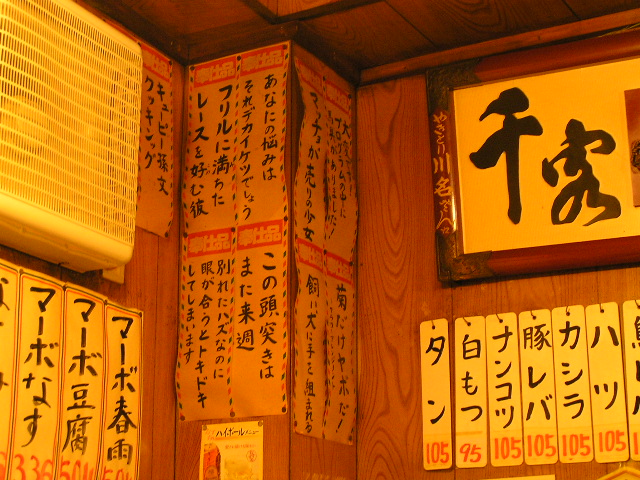 キューピー孫文
クッキング
奉仕品
奉仕品
あなたの悩みは
それ、デカイケツでしょう
フリルに満ちた
レースを好む彼
奉仕品
奉仕品
この頭突きは
また来週
別れたハズなのに
眼が合うとトキドキ
してしまいます
マッチョが売りの少女
菊だけヤボだ！
飼い犬に手を組まれる
千客
やきとり 川名
マーボ春雨
504
マーボ豆腐
504
マーボなす
336
タン
105
白もつ
95
ナンコツ
105
豚レバ
105
カシラ
105
ハツ
105
ハイボールメニュー